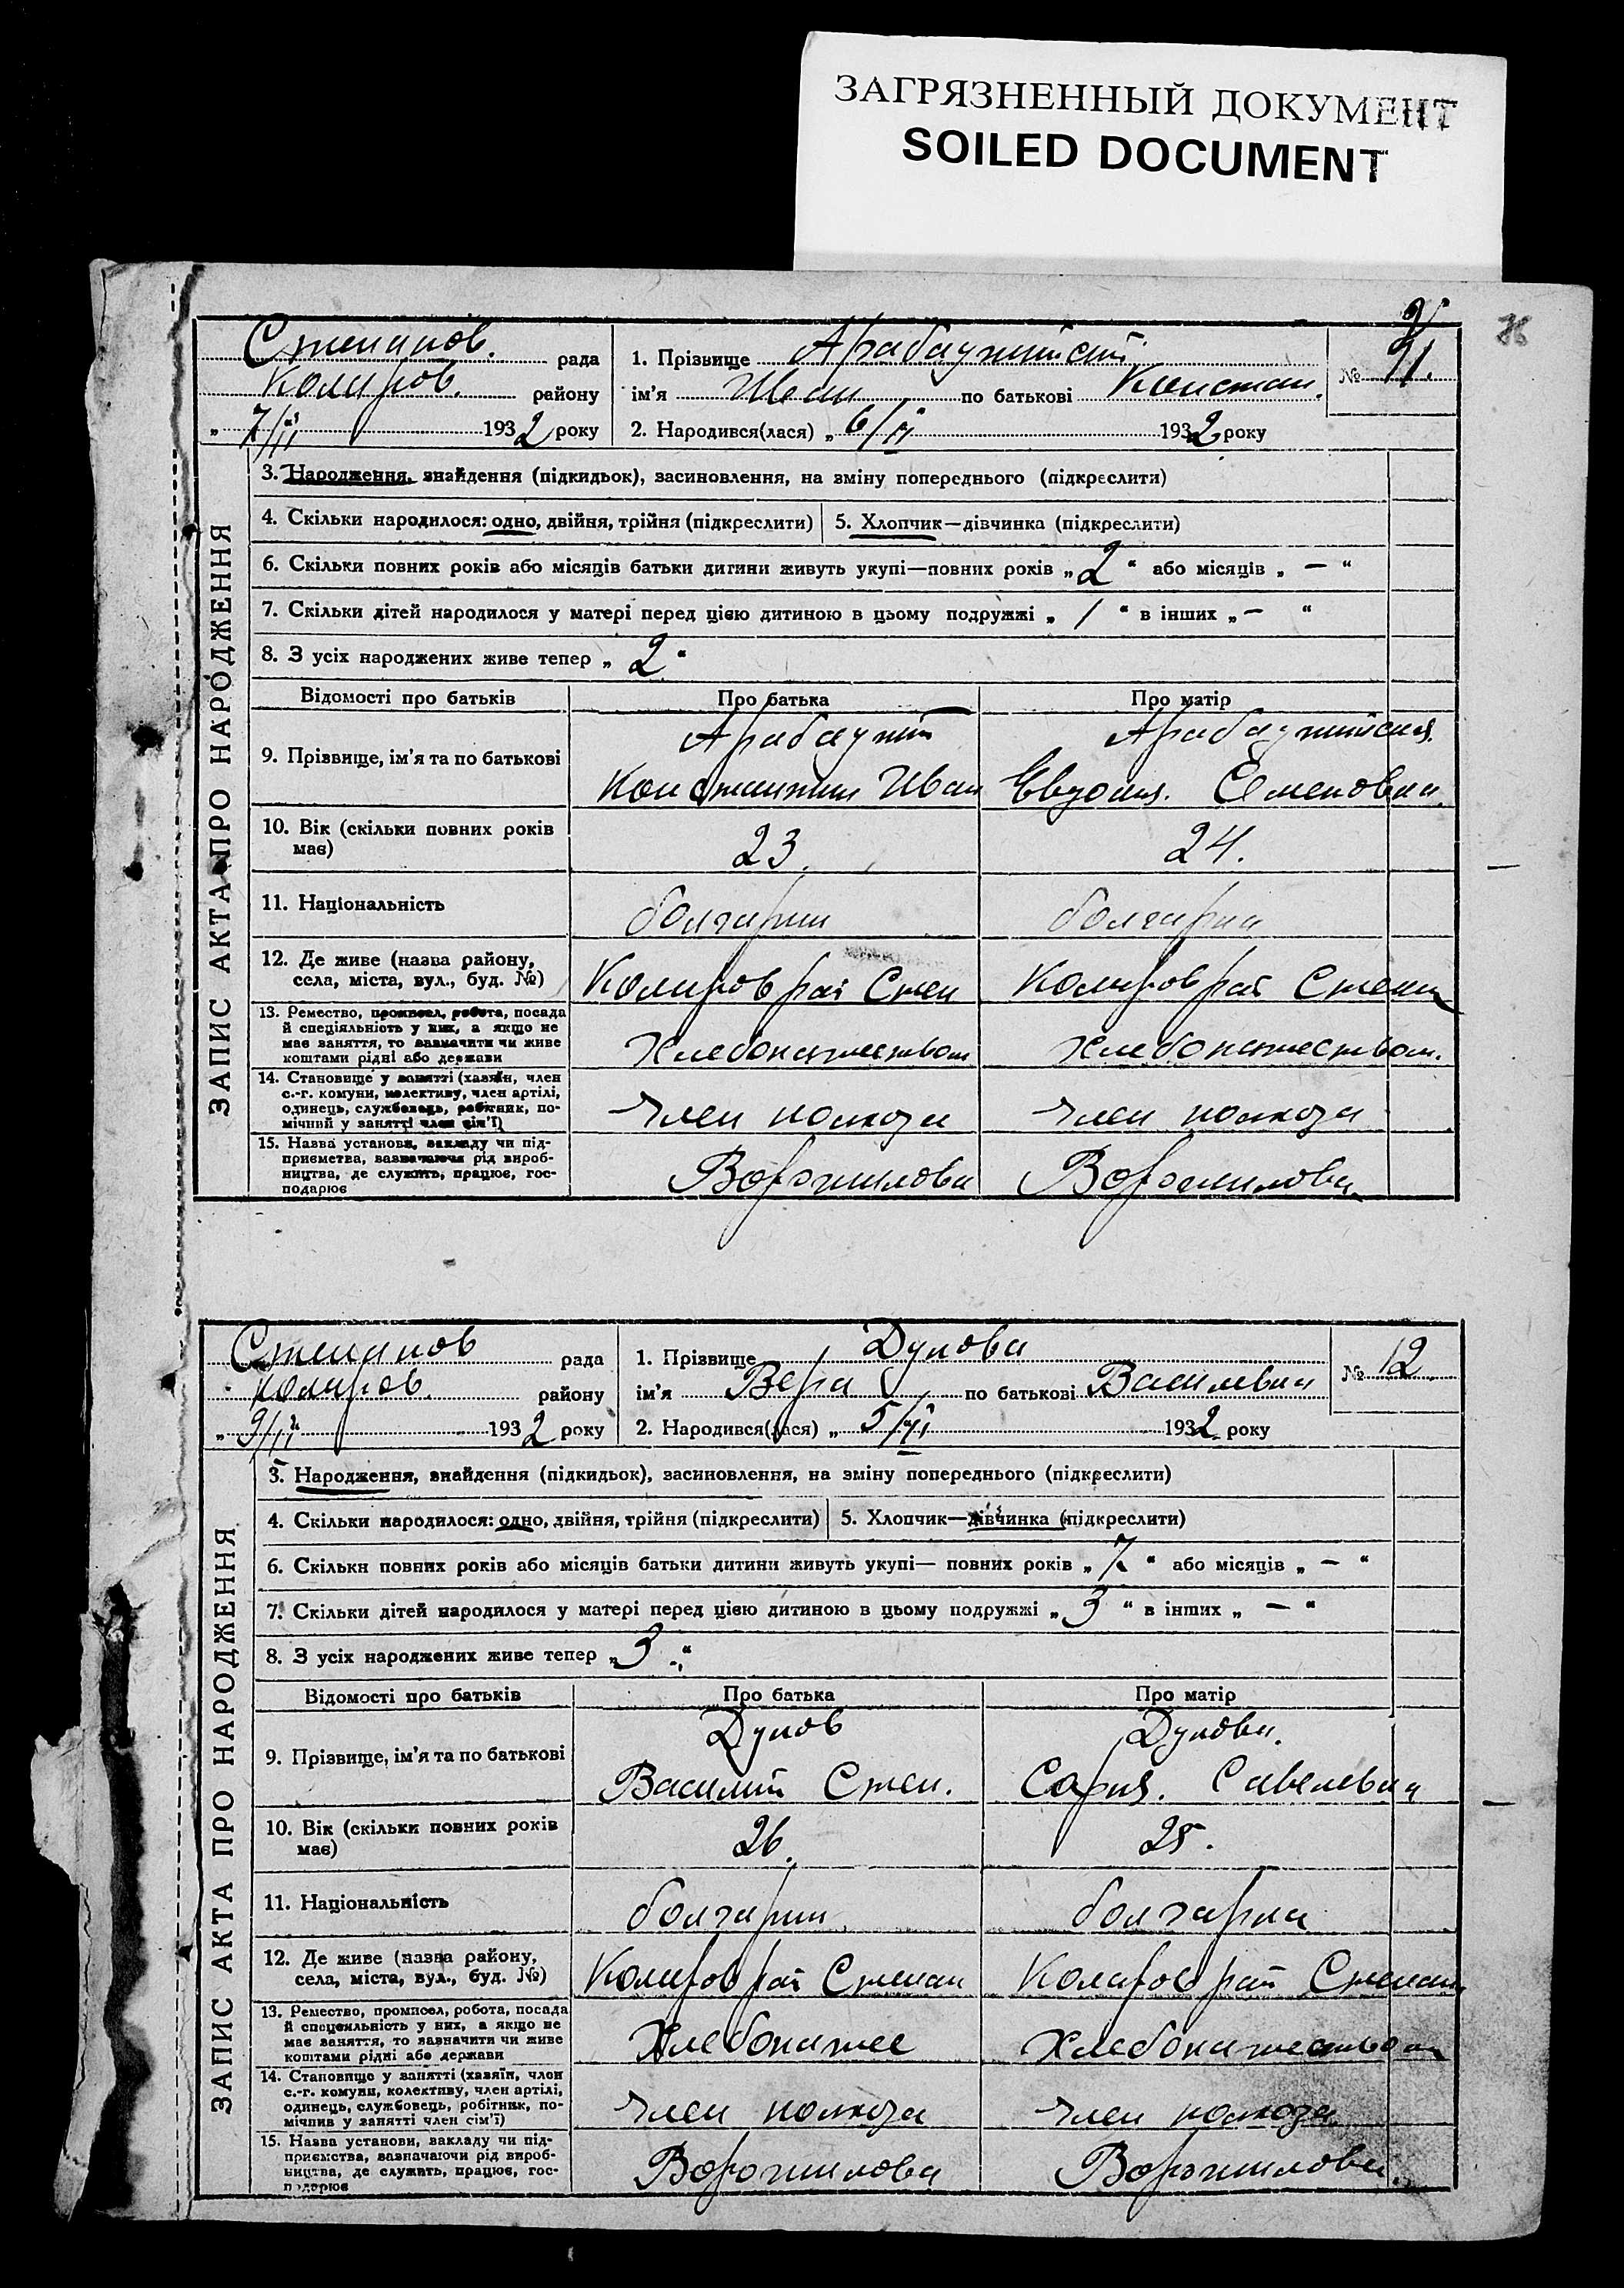 ЗАГРЯЗНЕННЫЙ ДОКУМЕНТ
SOILED DOCUMENT
Степанов. рада
Коларов. району
„ 7/II 1932 року
1. Прізвище
ім'я Иван по батькові Констан.
2. Народився(лася) „ 6/II 1932 року
№ 11.
ЗАПИС АКТА ПРО НАРОДЖЕННЯ
3. Народження, знайдення (підкидьок), засиновлення, на зміну попереднього (підкреслити)
4. Скільки народилося: одно, двійня, трійня (підкреслити)
5. Хлопчик—дівчинка (підкреслити)
6. Скільки повних років або місяців батьки дитини живуть укупі—повних років „ 2 “ або місяців „ — “
7. Скільки дітей народилося у матері перед цією дитиною в цьому подружжі „ 1 “ в інших „ — “
8. З усіх народжених живе тепер „ 2 “
Відомості про батьків
Про батька
Про матір
9. Прізвище, ім'я та по батькові
Константин Иван
Евдокия. Семеновна.
10. Вік (скільки повних років
має)
23.
24.
11. Національність
болгарин
болгарка
12. Де живе (назва району,
села, міста, вул., буд. №)
Коларов рай Степ
Коларов рай Степан
13. Ремество, промисел, робота, посада
й спеціяльність у них, а якщо не
має заняття, то зазначити чи живе
коштами рідні або держави
Хлебопашеством
Хлебопашеством.
14. Становище у занятті (хазяїн, член
с.-г. комуни, колективу, член артілі,
одинець, службовець, робітник, по-
мічний у занятті член сім'ї)
член колхоза
член колхоза
15. Назва установи, закладу чи під-
приємства, зазначаючи рід вироб-
ництва, де служить, працює, гос-
подарює
Ворошилова
Ворошилова
Степанов рада
Коларов. району
„ 9/II 1932 року
1. Прізвище Дунова
ім'я Вера по батькові Василевна
2. Народився(лася) „ 5/II 1932 року
№ 12.
ЗАПИС АКТА ПРО НАРОДЖЕННЯ
3. Народження, знайдення (підкидьок), засиновлення, на зміну попереднього (підкреслити)
4. Скільки народилося: одно, двійня, трійня (підкреслити)
5. Хлопчик—дівчинка (підкреслити)
6. Скільки повних років або місяців батьки дитини живуть укупі— повних років „ 7 “ або місяців „ — “
7. Скільки дітей народилося у матері перед цією дитиною в цьому подружжі „ 3 “ в інших „ — “
8. З усіх народжених живе тепер „ 3 “
Відомості про батьків
Про батька
Про матір
9. Прізвище, ім'я та по батькові
Дунов
Василий Степ.
Дунова.
Савелевна
10. Вік (скільки повних років
має)
26.
25.
11. Національність
болгарин
болгарка
12. Де живе (назва району,
села, міста, вул., буд. №)
Коларов рай Степан
Коларов рай Степан
13. Ремество, промисел, робота, посада
й спеціяльність у них, а якщо не
має заняття, то зазначити чи живе
коштами рідні або держави
Хлебопаше
Хлебопашеством
14. Становище у занятті (хазяїн, член
с.-г. комуни, колективу, член артілі,
одинець, службовець, робітник, по-
мічний у занятті член сім'ї)
член колхоза
член колхоза
15. Назва установи, закладу чи під-
приємства, зазначаючи рід вироб-
ництва, де служить, працює, гос-
подарює
Ворошилова
Ворошилова